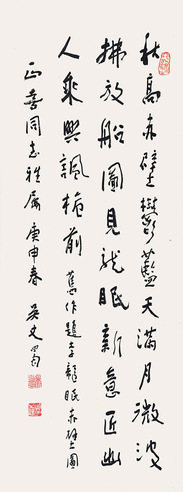 秋高赤壁鬱藍天滿月微波
拂放船圖見龍眠新意匠幽
人乘興諷桅前 舊作題李龍眠赤壁圖
正喜同志雅屬 庚申春 吳丈蜀